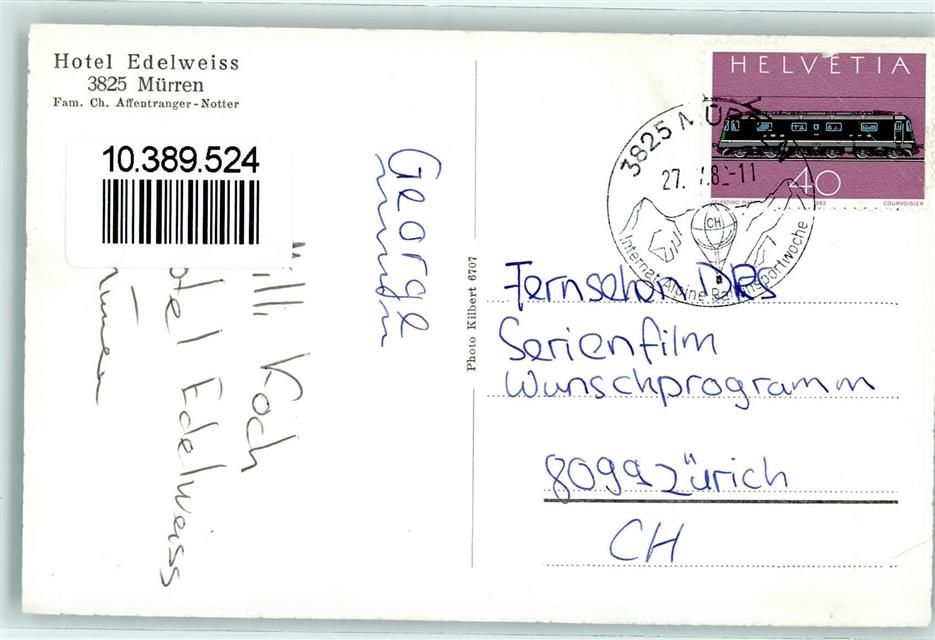 Hotel Edelweiss
3825 Mürren
Fam. Ch. Affentranger-Notter
10.389.524
George
Koch
Edelweiss
Photo Kilbert 6707
HELVETIA
40
COURVOISIER
3825
27.
-11
CH
Internat. Alpine Ballonsportwoche
Fernsehen DRS
Serienfilm
Wunschprogramm
8099 Zürich
CH